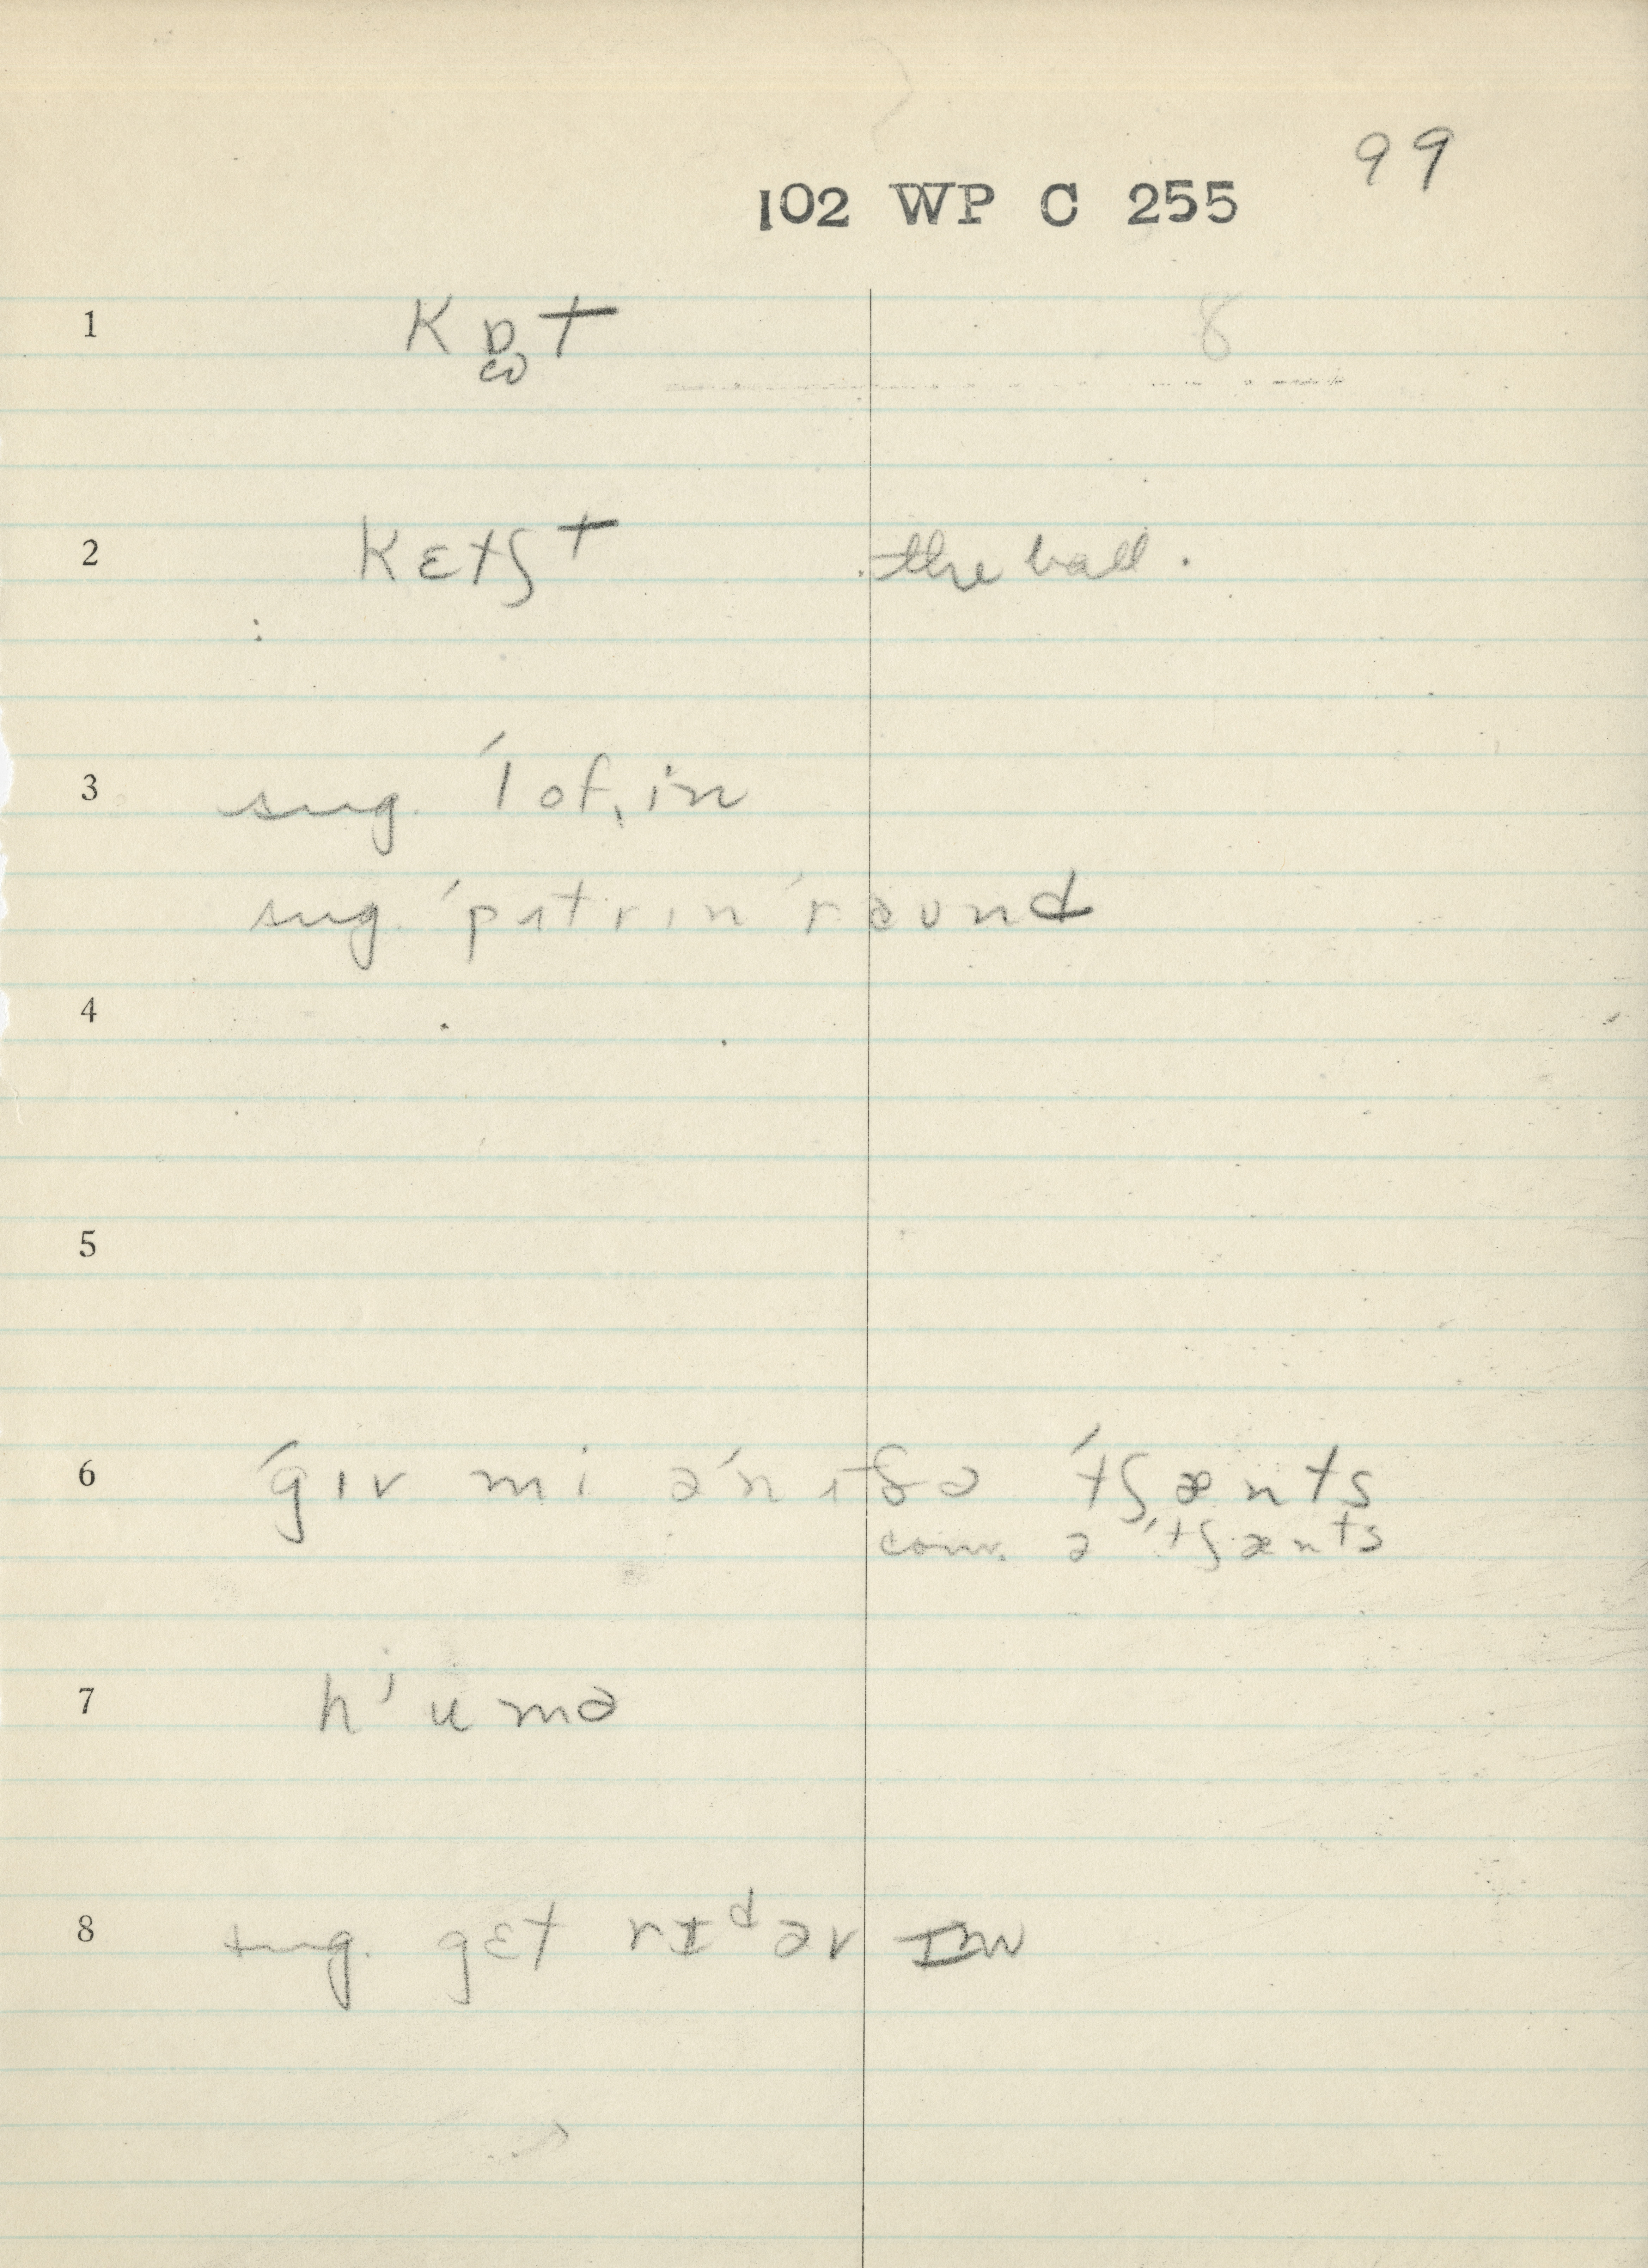 99
102 WP C 255
1 kɒt 8
ꞷ
2 kɛtʃt the ball.
3 sug. ˈlofˌin
sug. ˈpʌtrɪn ˈrəʊnd
4
5
6 ˈgɪv mi əˈnʌðə ˈtʃænts
conv. ə ˈtʃænts
7 hˈumə
8 sug. gɛt rɪdəv ɪm